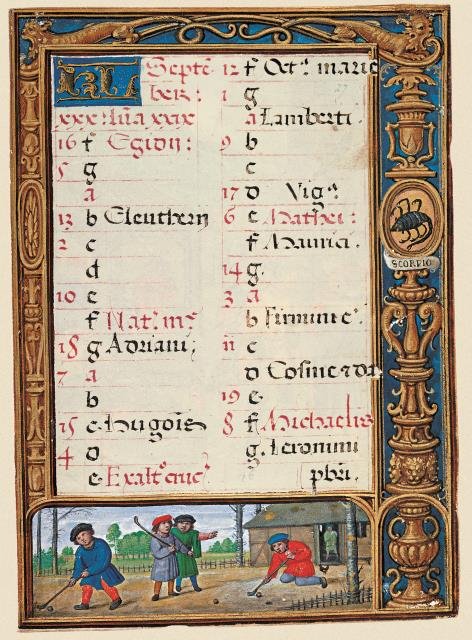 KL Septẽ
ber:
xxx: lũa xxix
16 f Egidii:
5 g
a
13 b Eleutherii
2 c
d
10 e
f Nat. mr̃
18 g Adriani;
7 a
b
15 c Hugois
4 d
e Exalt. cruc̃
12 f Oct. marie
1 g
a Lamberti.
9 b
c
17 d Vigᵃ
6 e Mathei:
f Maurici.
14 g.
3 a
b Firmini e.
11 c
d Cosme & da
19 e.
8 f Michaelis
g. Ieronimi
pbri.
SCORPIO